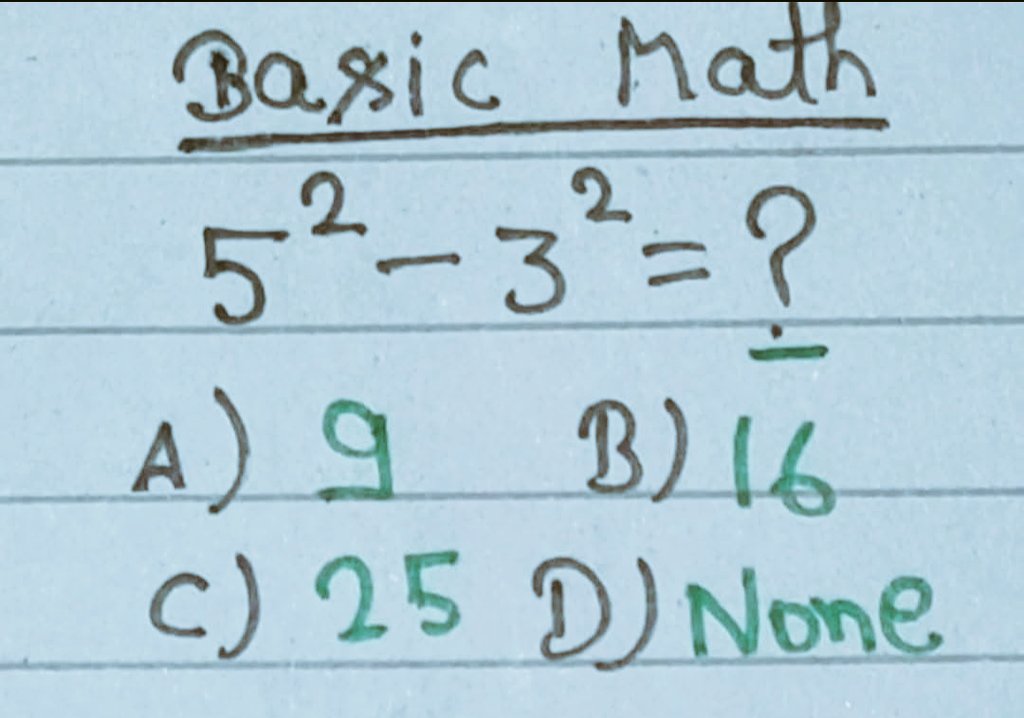 Basic Math
5² - 3² = ?
A) 9 B) 16
C) 25 D) None